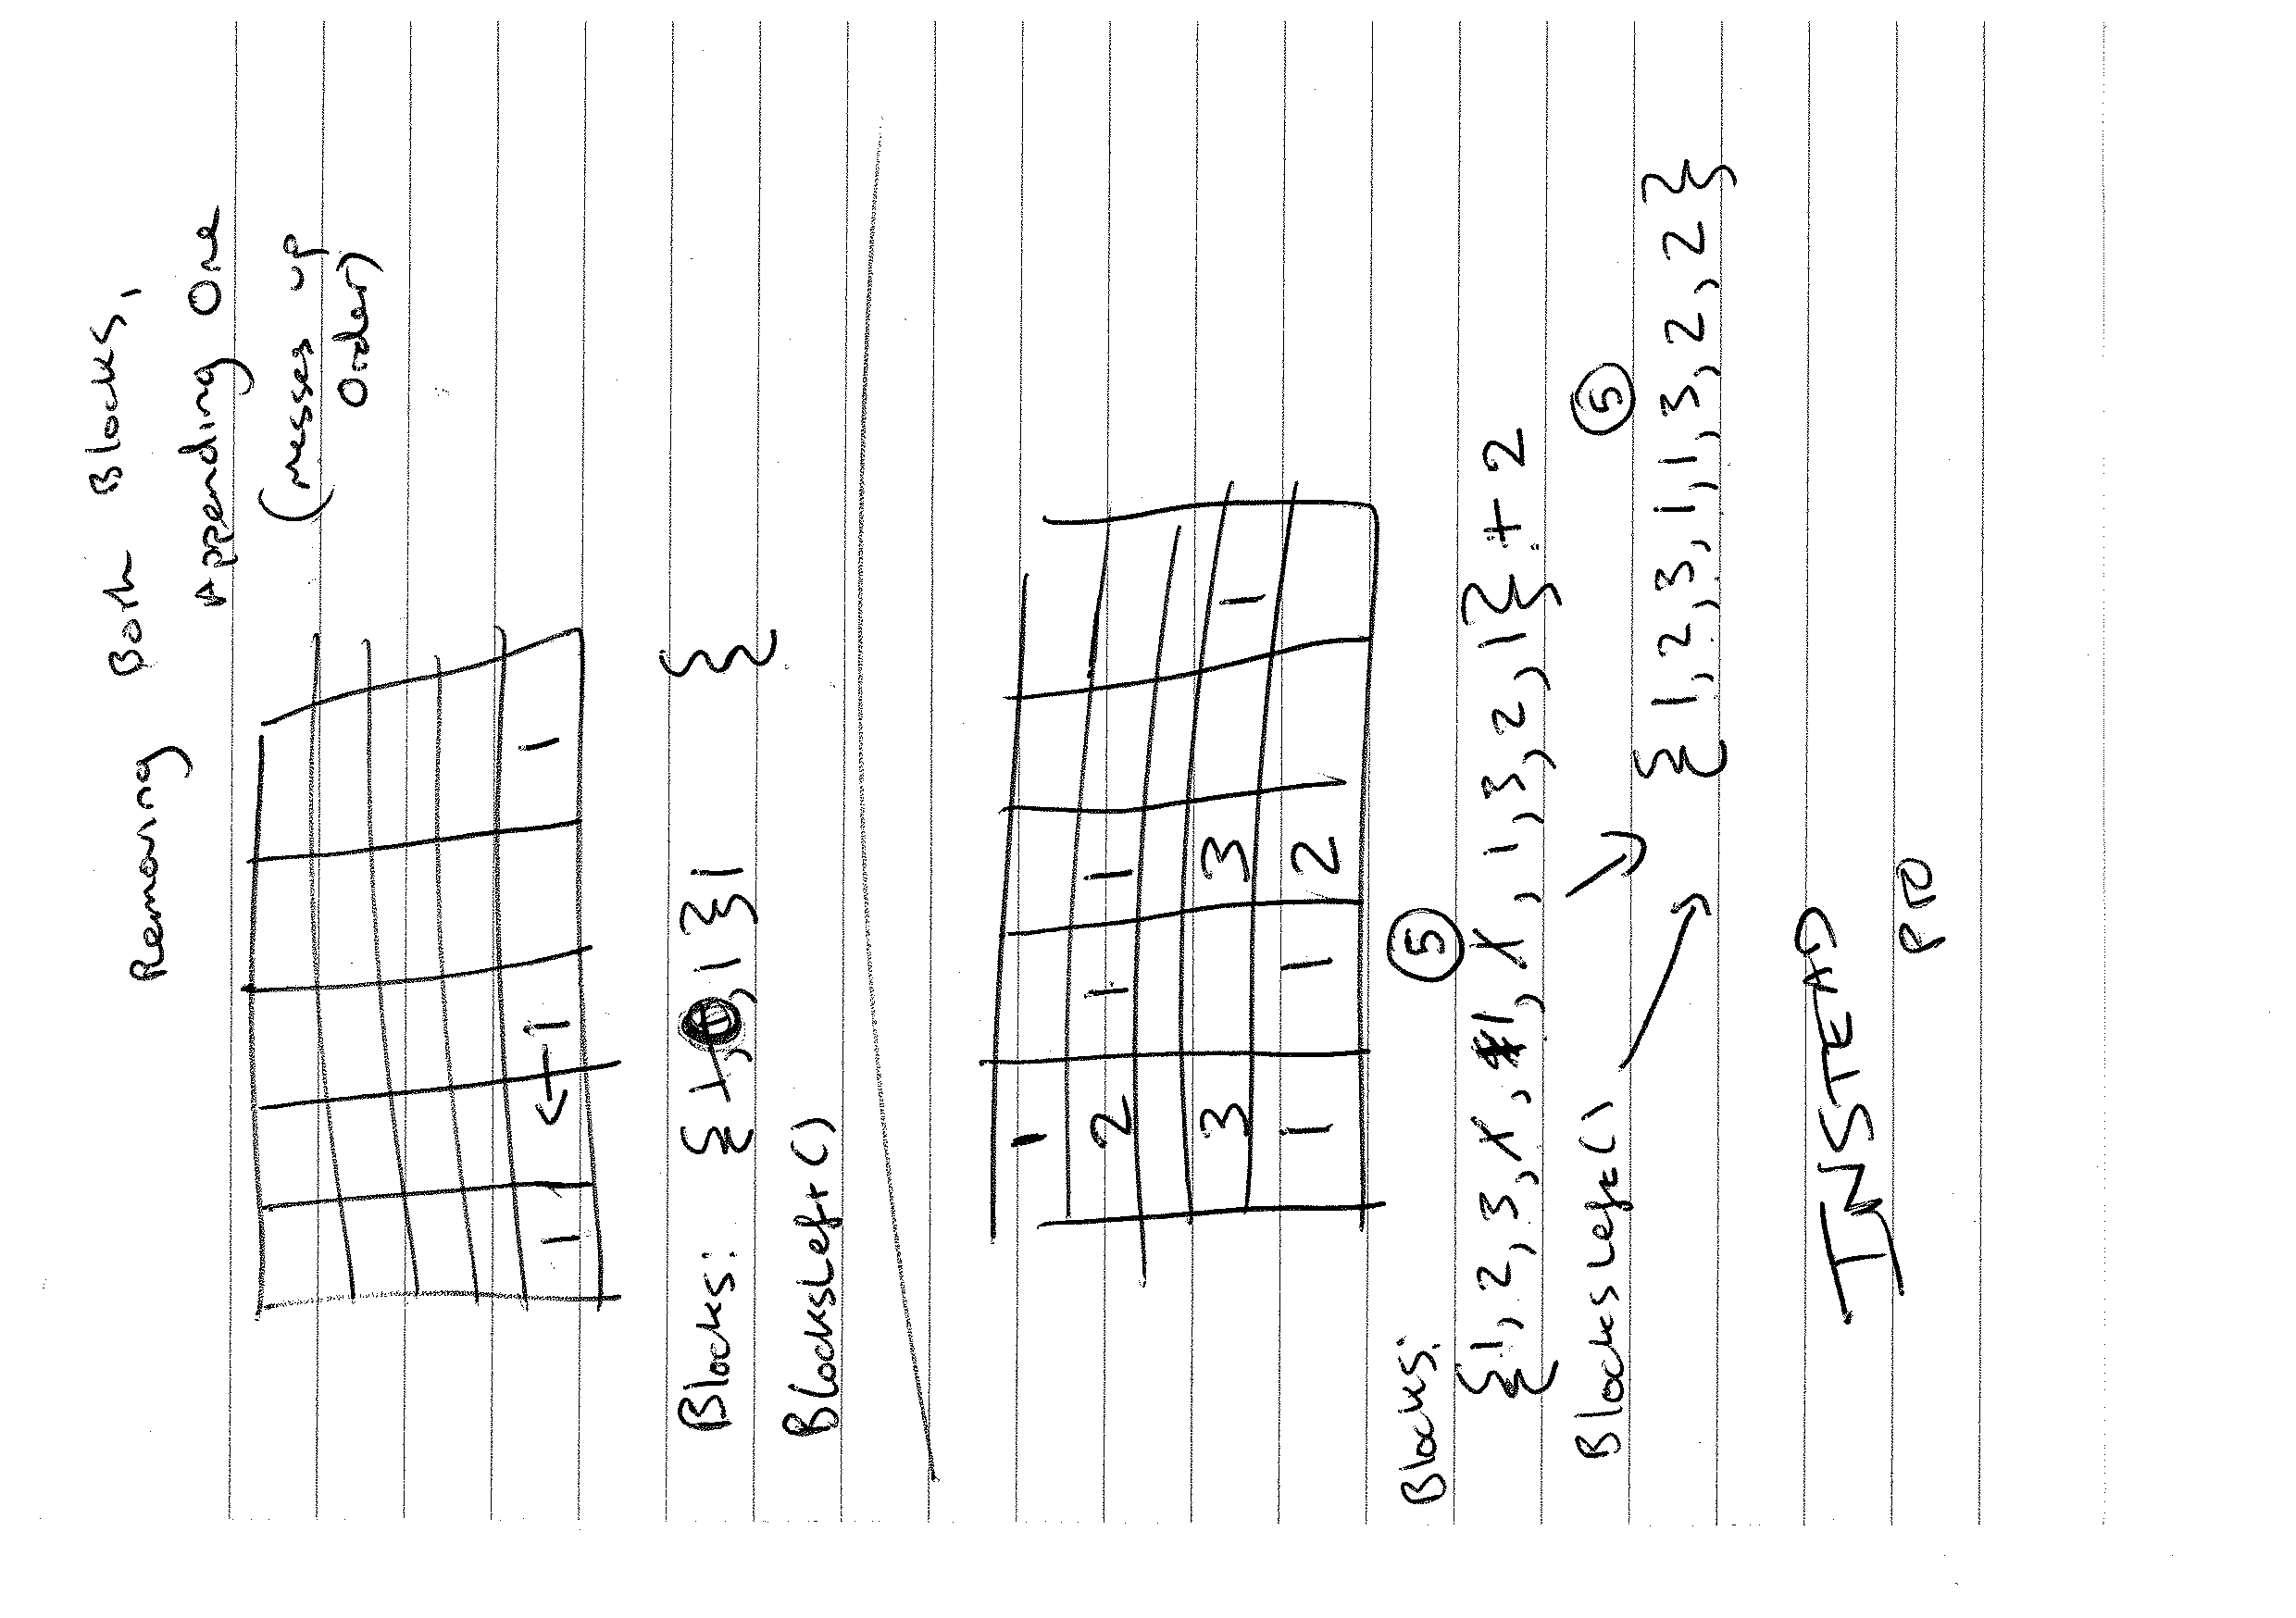 Removing Both Blocks,
Appending One
(messes up
Order)
1 ← 1 1
Blocks: { 1, , 1 } 1 }
BlocksLeft()
1
2 1 1
3 3 1
1 1 2
Blocks: 5
{1, 2, 3, 1, 1, 1, 1, 3, 2, 1} + 2
BlocksLeft() 5
{ 1, 2, 3, 1, 1, 3, 2, 2 }
INSTEAD